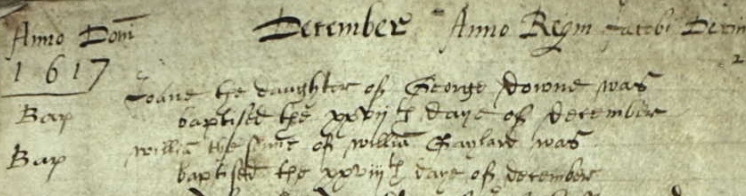 Anno Domi December Anno Regni Jacobi Decim
1617
Joane the daughter of George Downe was
Bap baptised the xxvijth daye of december
Bap willia the sonne of willia Gaylard was
baptised the xxviijth daye of december